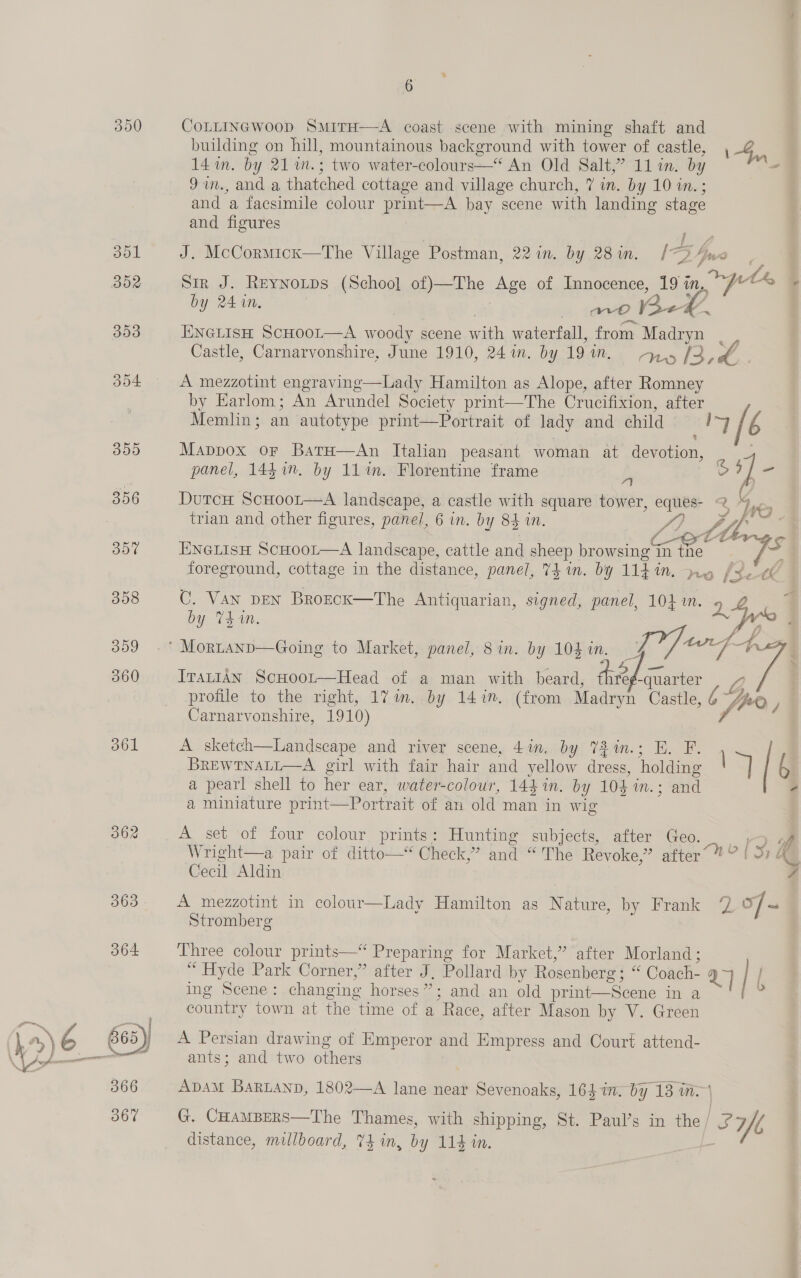 6
350 COLLINGWOOD SMITH—A coast scene with mining shaft and
building on hill, mountainous background with tower of castle,
14 in. by 21 in.; two water-colours—“ An Old Salt,” 11 in. by
9 in., and a thatched cottage and village church, 7 in. by 10 in.;
and a facsimile colour print—A bay scene with landing stage
and figures
351 J. MCCORMICK—The Village Postman, 22 in. by 28 in.
352 SIR J. REYNOLDS (School of)—The Age of Innocence, 19 in.
by 24 in.
353 ENGLISH SCHOOL—A woody scene with waterfall, from Madryn
Castle, Carnarvonshire, June 1910, 24 in. by 19 in.
354 A mezzotint engraving—Lady Hamilton as Alope, after Romney
by Earlom; An Arundel Society print—The Crucifixion, after
Memlin; an autotype print—Portrait of lady and child 17/6
355 MADDOX OF BATH—An Italian peasant woman at devotion,
panel, 14½ in. by 11 in. Florentine frame
356 DUTCH SCHOOL—A landscape, a castle with square tower, eques-
trian and other figures, panel, 6 in. by 8½ in.
357 ENGLISH SCHOOL—A landscape, cattle and sheep browsing in the
foreground, cottage in the distance, panel, 7½ in. by 11½ in.
358 C. VAN DEN BROECK—The Antiquarian, signed, panel, 10½ in.
by 7½ in.
359 MORLAND—Going to Market, panel, 8 in. by 10½ in.
360 ITALIAN SCHOOL—Head of a man with beard, three-quarter
profile to the right, 17 in. by 14 in. (from Madryn Castle,
Carnarvonshire, 1910)
361 A sketch—Landscape and river scene, 4 in. by 7¾ in.; E. F.
BREWTNALL—A girl with fair hair and yellow dress, holding 17/6
a pearl shell to her ear, water-colour, 14½ in. by 10½ in.; and
a miniature print—Portrait of an old man in wig
362 A set of four colour prints: Hunting subjects, after Geo.
Wright—a pair of ditto—“ Check,” and “ The Revoke,” after
Cecil Aldin
363 A mezzotint in colour—Lady Hamilton as Nature, by Frank
Stromberg
364 Three colour prints—“ Preparing for Market,” after Morland;
“ Hyde Park Corner,” after J. Pollard by Rosenberg; “ Coach-
ing Scene: changing horses”; and an old print—Scene in a
country town at the time of a Race, after Mason by V. Green
365 A Persian drawing of Emperor and Empress and Court attend-
ants; and two others
366 ADAM BARLAND, 1802—A lane near Sevenoaks, 16½ in. by 13 in.
367 G. CHAMBERS—The Thames, with shipping, St. Paul's in the
distance, millboard, 7½ in, by 11½ in.